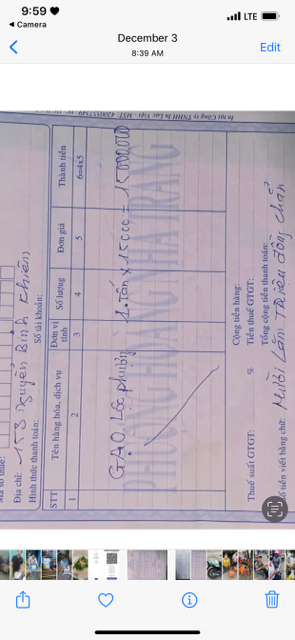 9:59
LTE
Camera
December 3
8:39 AM
Edit
Mã số thuế:
Địa chỉ: 153 Nguyễn Bỉnh Khiêm
Hình thức thanh toán: Số tài khoản:
STT Tên hàng hóa, dịch vụ Đơn vị tính Số lượng Đơn giá Thành tiền
1 2 3 4 5 6=4x5
GẠO Lộc phượng 1.Tấn x 15000 = 15000.000
PHƯƠNG NHA TRANG
Cộng tiền hàng:
Thuế suất GTGT: % Tiền thuế GTGT:
Tổng cộng tiền thanh toán:
Số tiền viết bằng chữ: Mười Lăm Triệu đồng chẵn
In tại Công ty TNHH In Việt - MST: 4200557349